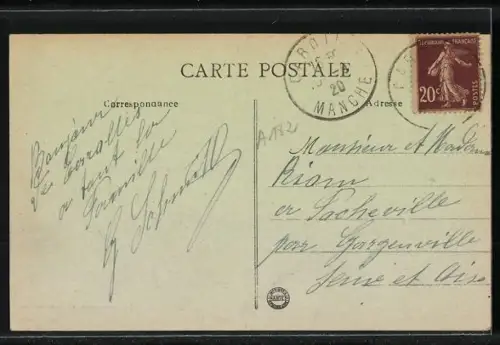 CARTE POSTALE
Correspondance
Adresse
MANCHE
20
RÉPUBLIQUE FRANÇAISE
20c
POSTES
A182
Bonjour
de Carolles
a tout la
famille
Monsieur et Madame
Riom
par Gargenville
Seine et Oise